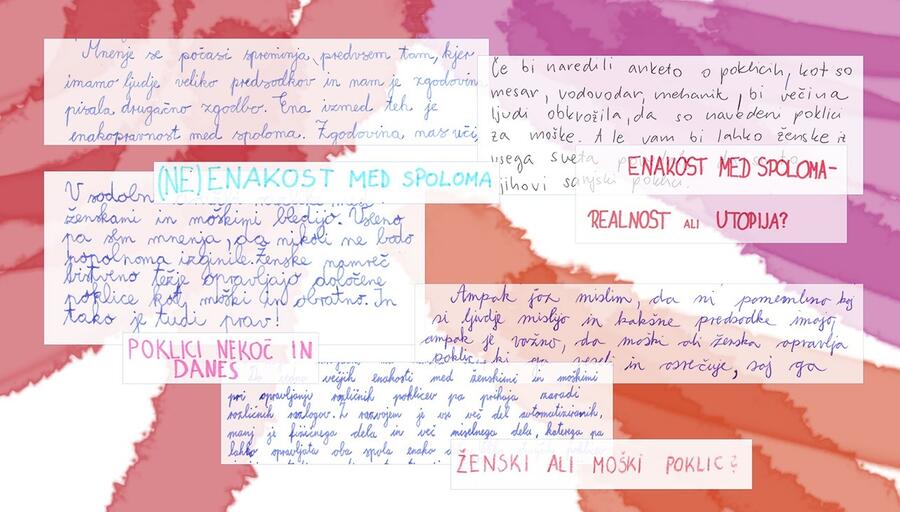 Mnenje se počasi spreminja, predvsem tam, kjer
imamo ljudje veliko predsodkov in nam je zgodovin
pisala drugačno zgodbo. Ena izmed teh je
enakopravnost med spoloma. Zgodovina nas uči,
Če bi naredili anketo o poklicih, kot so
mesar, vodovodar, mehanik, bi večina
ljudi obkrožila, da so navedeni poklici
za moške. Ale vam bi lahko ženske iz
vsega sveta
njihovi sanjski poklic.
(NE)ENAKOST MED SPOLOMA
ENAKOST MED SPOLOMA-
REALNOST ALI UTOPIJA?
V sodobn
ženskami in moškimi bledijo. Vseeno
pa sem mnenja, da nikoli ne bodo
popolnoma izginile. Ženske namreč
bistveno težje opravljajo določene
poklice kot moški in obratno. In
tako je tudi prav!
Ampak jaz mislim, da ni pomembno kaj
si ljudje mislijo in kakšne predsodke imajo,
ampak je važno, da moški ali ženska opravlja
poklic, ki ga veseli in osrečuje, saj ga
POKLICI NEKOČ IN
DANES
večjih enakosti med ženskimi in moškimi
pri opravljanju različnih poklicev pa prihaja zaradi
različnih razlogov. Z razvojem je vse več del avtomatiziranih,
manj je fizičnega dela in več miselnega dela, katerega pa
lahko opravljata oba spola enako
ŽENSKI ALI MOŠKI POKLIC?